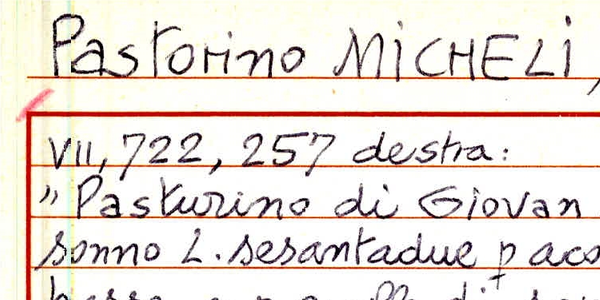 Pastorino MICHELI,
VII, 722, 257 destra:
" Pasturino di Giovan
sonno L. sesantadue p aco